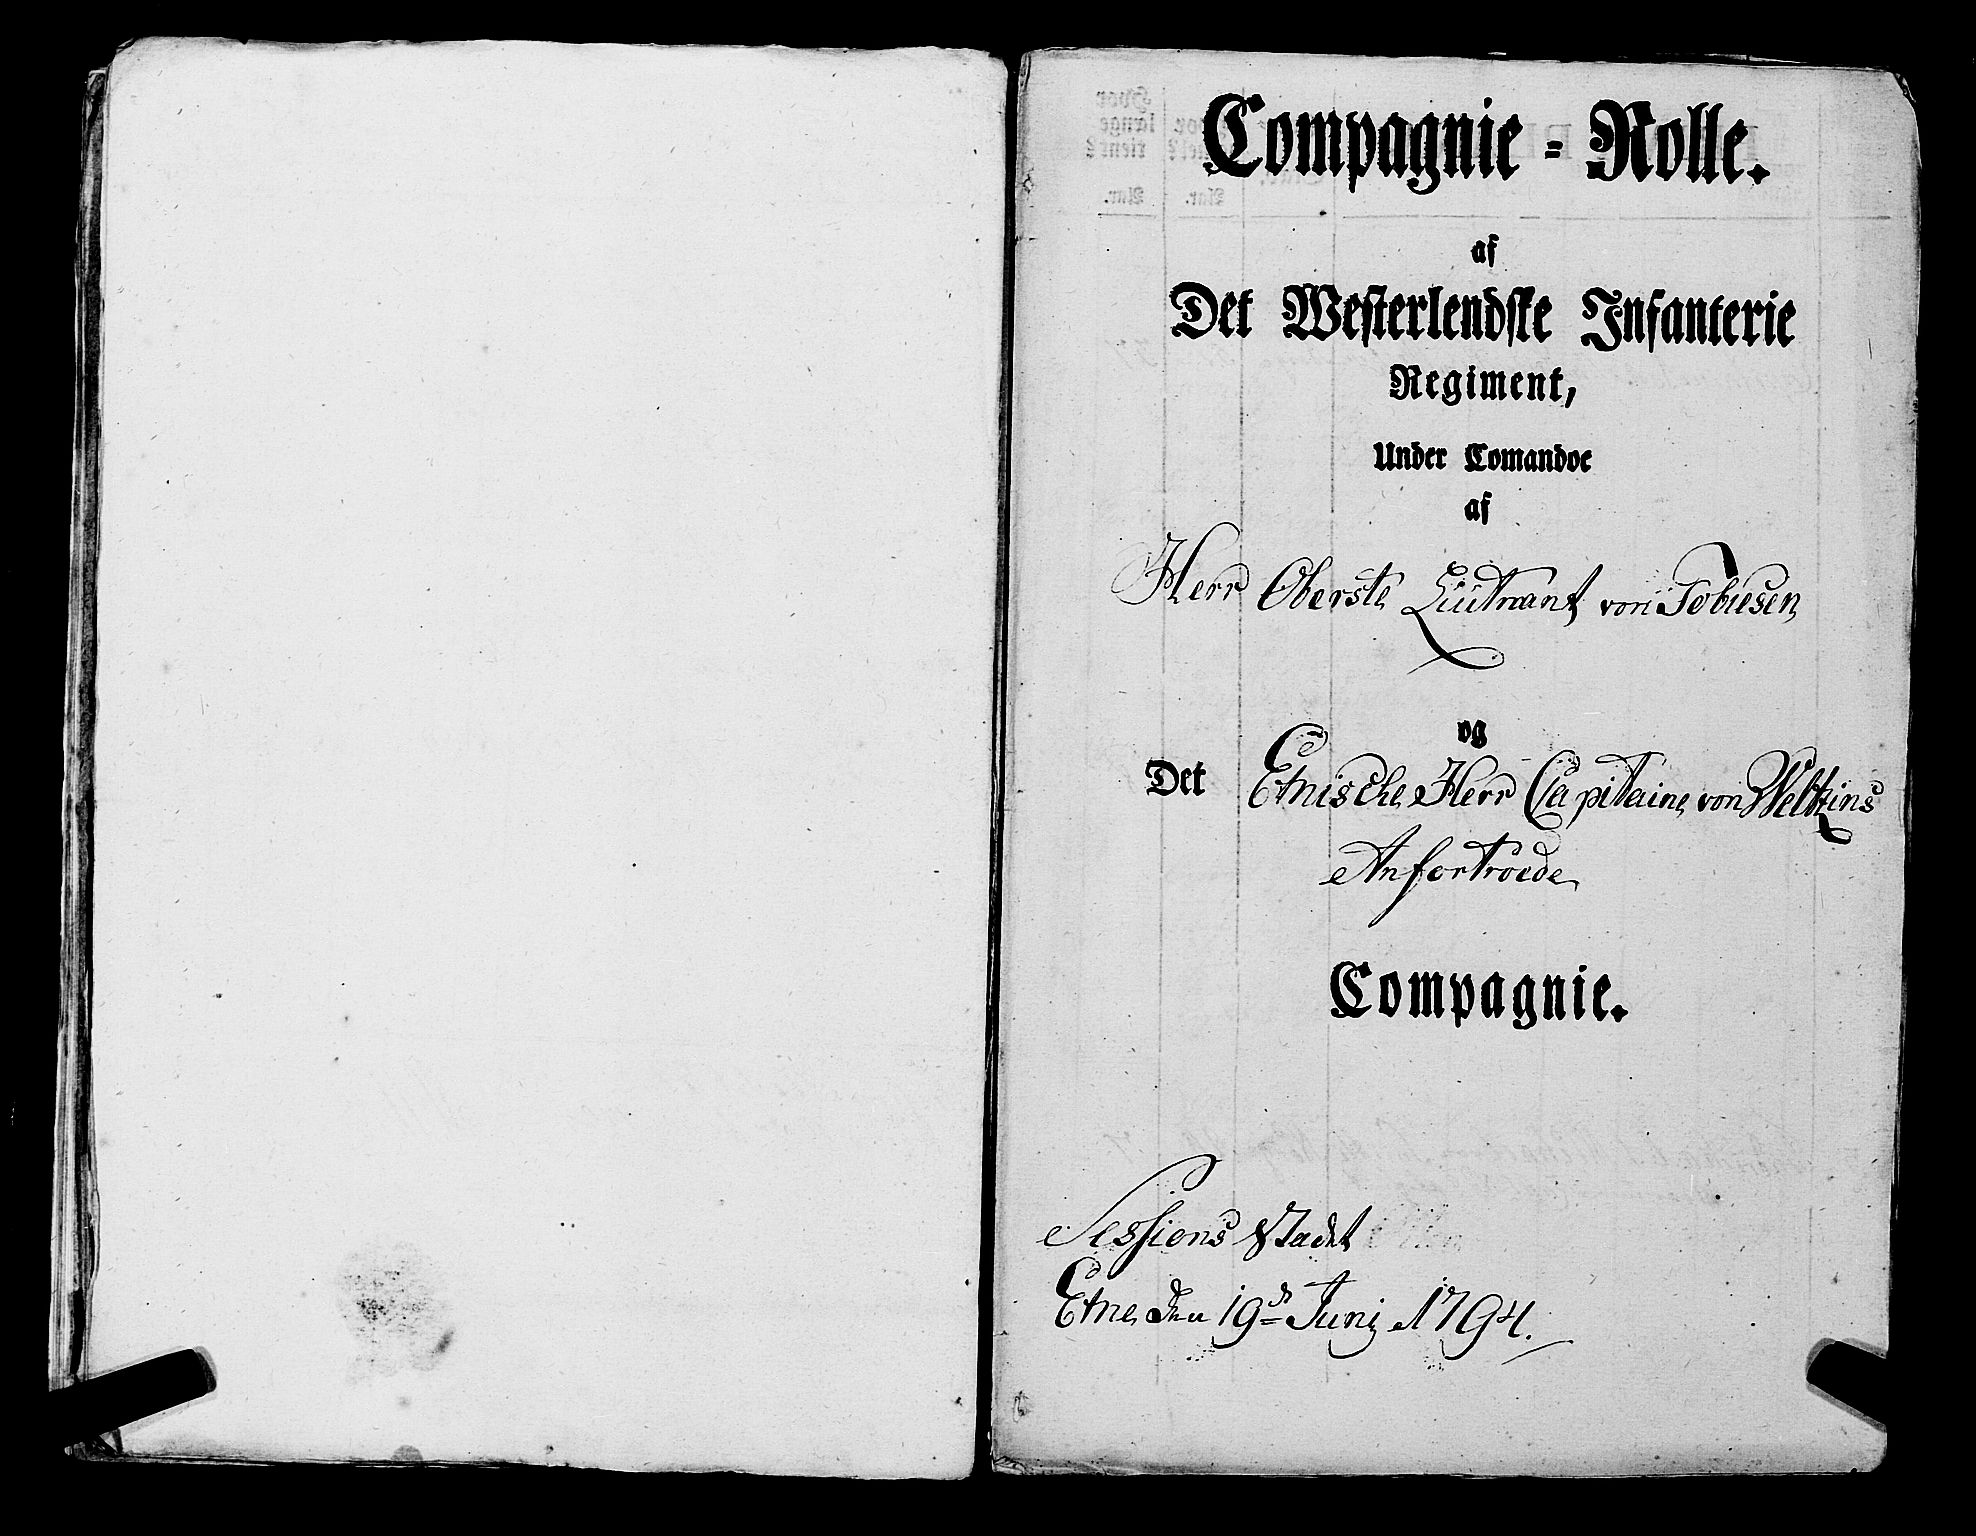 Compagnie = Rolle.
af
Det Westerlendske Infanterie
Regiment,
Under Comandoe
af
Herr Oberste Liutnant von Tobiesen
og
Det Etnische Herr Capitaine von Weltzins
Anfortroede
Compagnie.
Sessions Stadet
Etne den 19de Junj 1794.